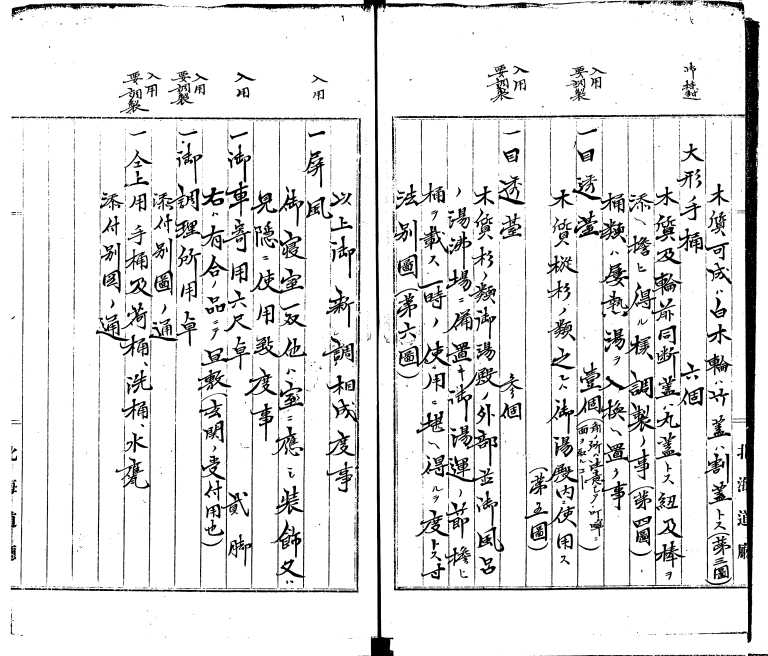 木質可成ハ白木輪ハ竹蓋ハ割蓋トス(第三圖)
御標製
大形手桶 六個
木質及輪前同断蓋ハ丸蓋トス紐及棒ヲ
添ヘ擔ヒ得ル様調製ノ事(第四圖)
桶類ハ屡熱湯ヲ入換ヘ置ク事
入用
要調製
一目透簀 壹個
木質樅杉ノ類之ハ御湯殿内ニ使用ス
(第五圖)
入用
要調製
一目透簀 参個
木質杉ノ類御湯殿ノ外部並御風呂
ノ湯沸場ニ備置キ御湯運ノ節擔ヒ
桶ヲ載ス一時ノ使用ニ堪ヘ得ルヲ度トス寸
法別圖(第六圖)
以上御新調相成度事
入用
一屏風
御寝室一双他ハ室ニ應シ装飾又ハ
見隠ニ使用致度事
入用
一御車寄用六尺卓 貳脚
右ハ有合ノ品ニテ宜敷(玄関ノ受付用也)
入用
要調製
一御調理所用卓
添付別圖ノ通
入用
要調製
一仝上用手桶及荷桶、洗桶、水甕
添付別図ノ通
北海道廳